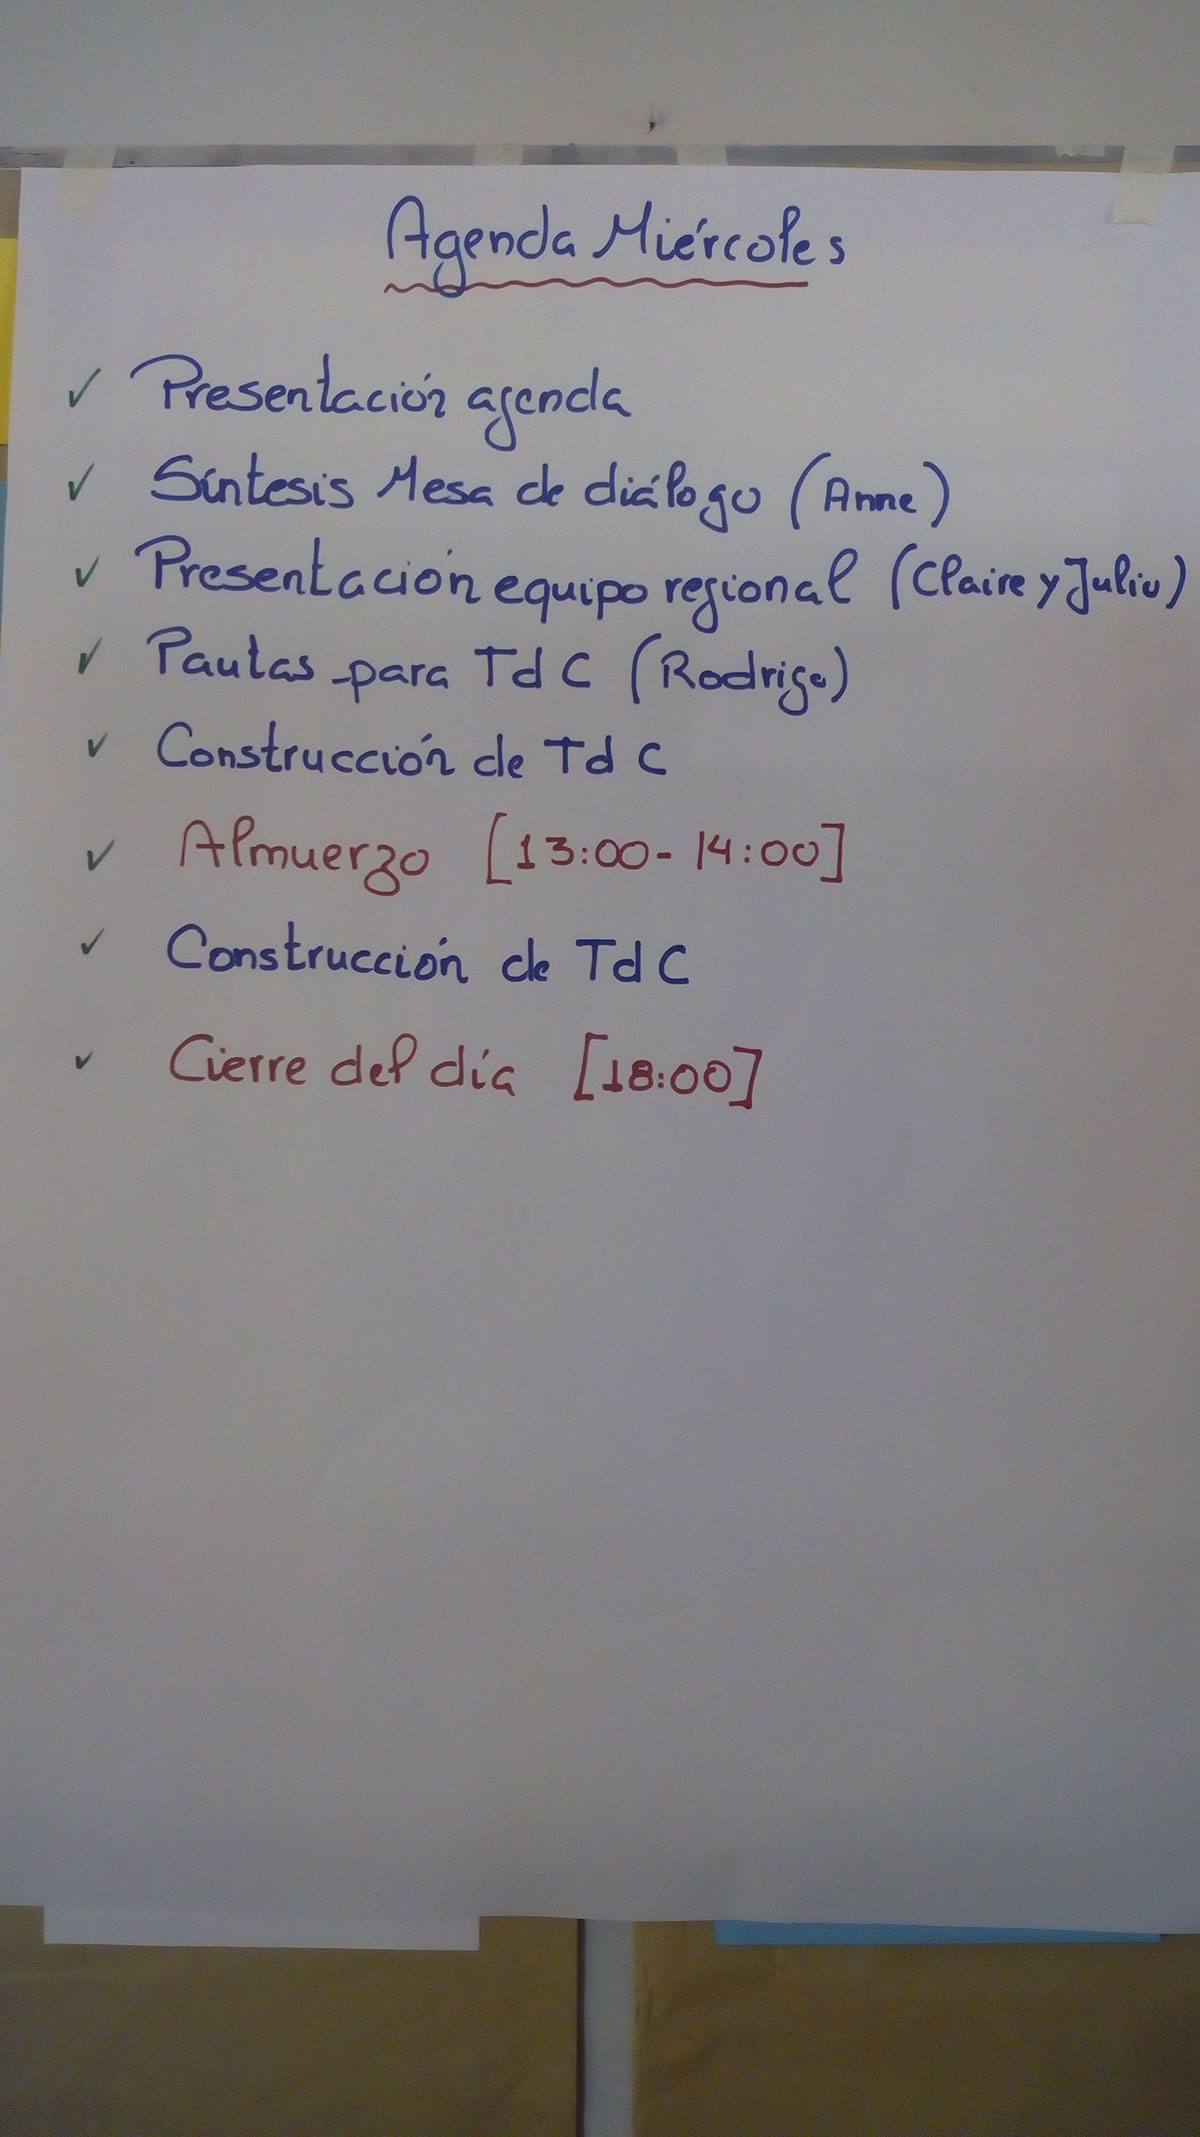 Agenda Miércoles
✓ Presentación agenda
✓ Síntesis Mesa de diálogo (Anne)
✓ Presentación equipo regional (Claire y Julio)
✓ Pautas para TdC (Rodrigo)
✓ Construcción de TdC
✓ Almuerzo [13:00-14:00]
✓ Construcción de TdC
✓ Cierre del día [18:00]